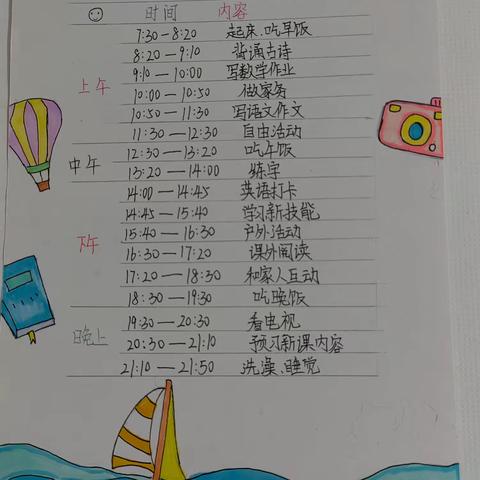 时间 内容
7:30—8:20 起床、吃早饭
8:20—9:10 背诵古诗
9:10—10:00 写数学作业
上午 10:00—10:50 做家务
10:50—11:30 写语文作文
11:30—12:30 自由活动
中午 12:30—13:20 吃午饭
13:20—14:00 练字
14:00—14:45 英语打卡
14:45—15:40 学习新技能
下午 15:40—16:30 户外活动
16:30—17:20 课外阅读
17:20—18:30 和家人互动
18:30—19:30 吃晚饭
19:30—20:30 看电视
晚上 20:30—21:10 预习新课内容
21:10—21:50 洗澡、睡觉